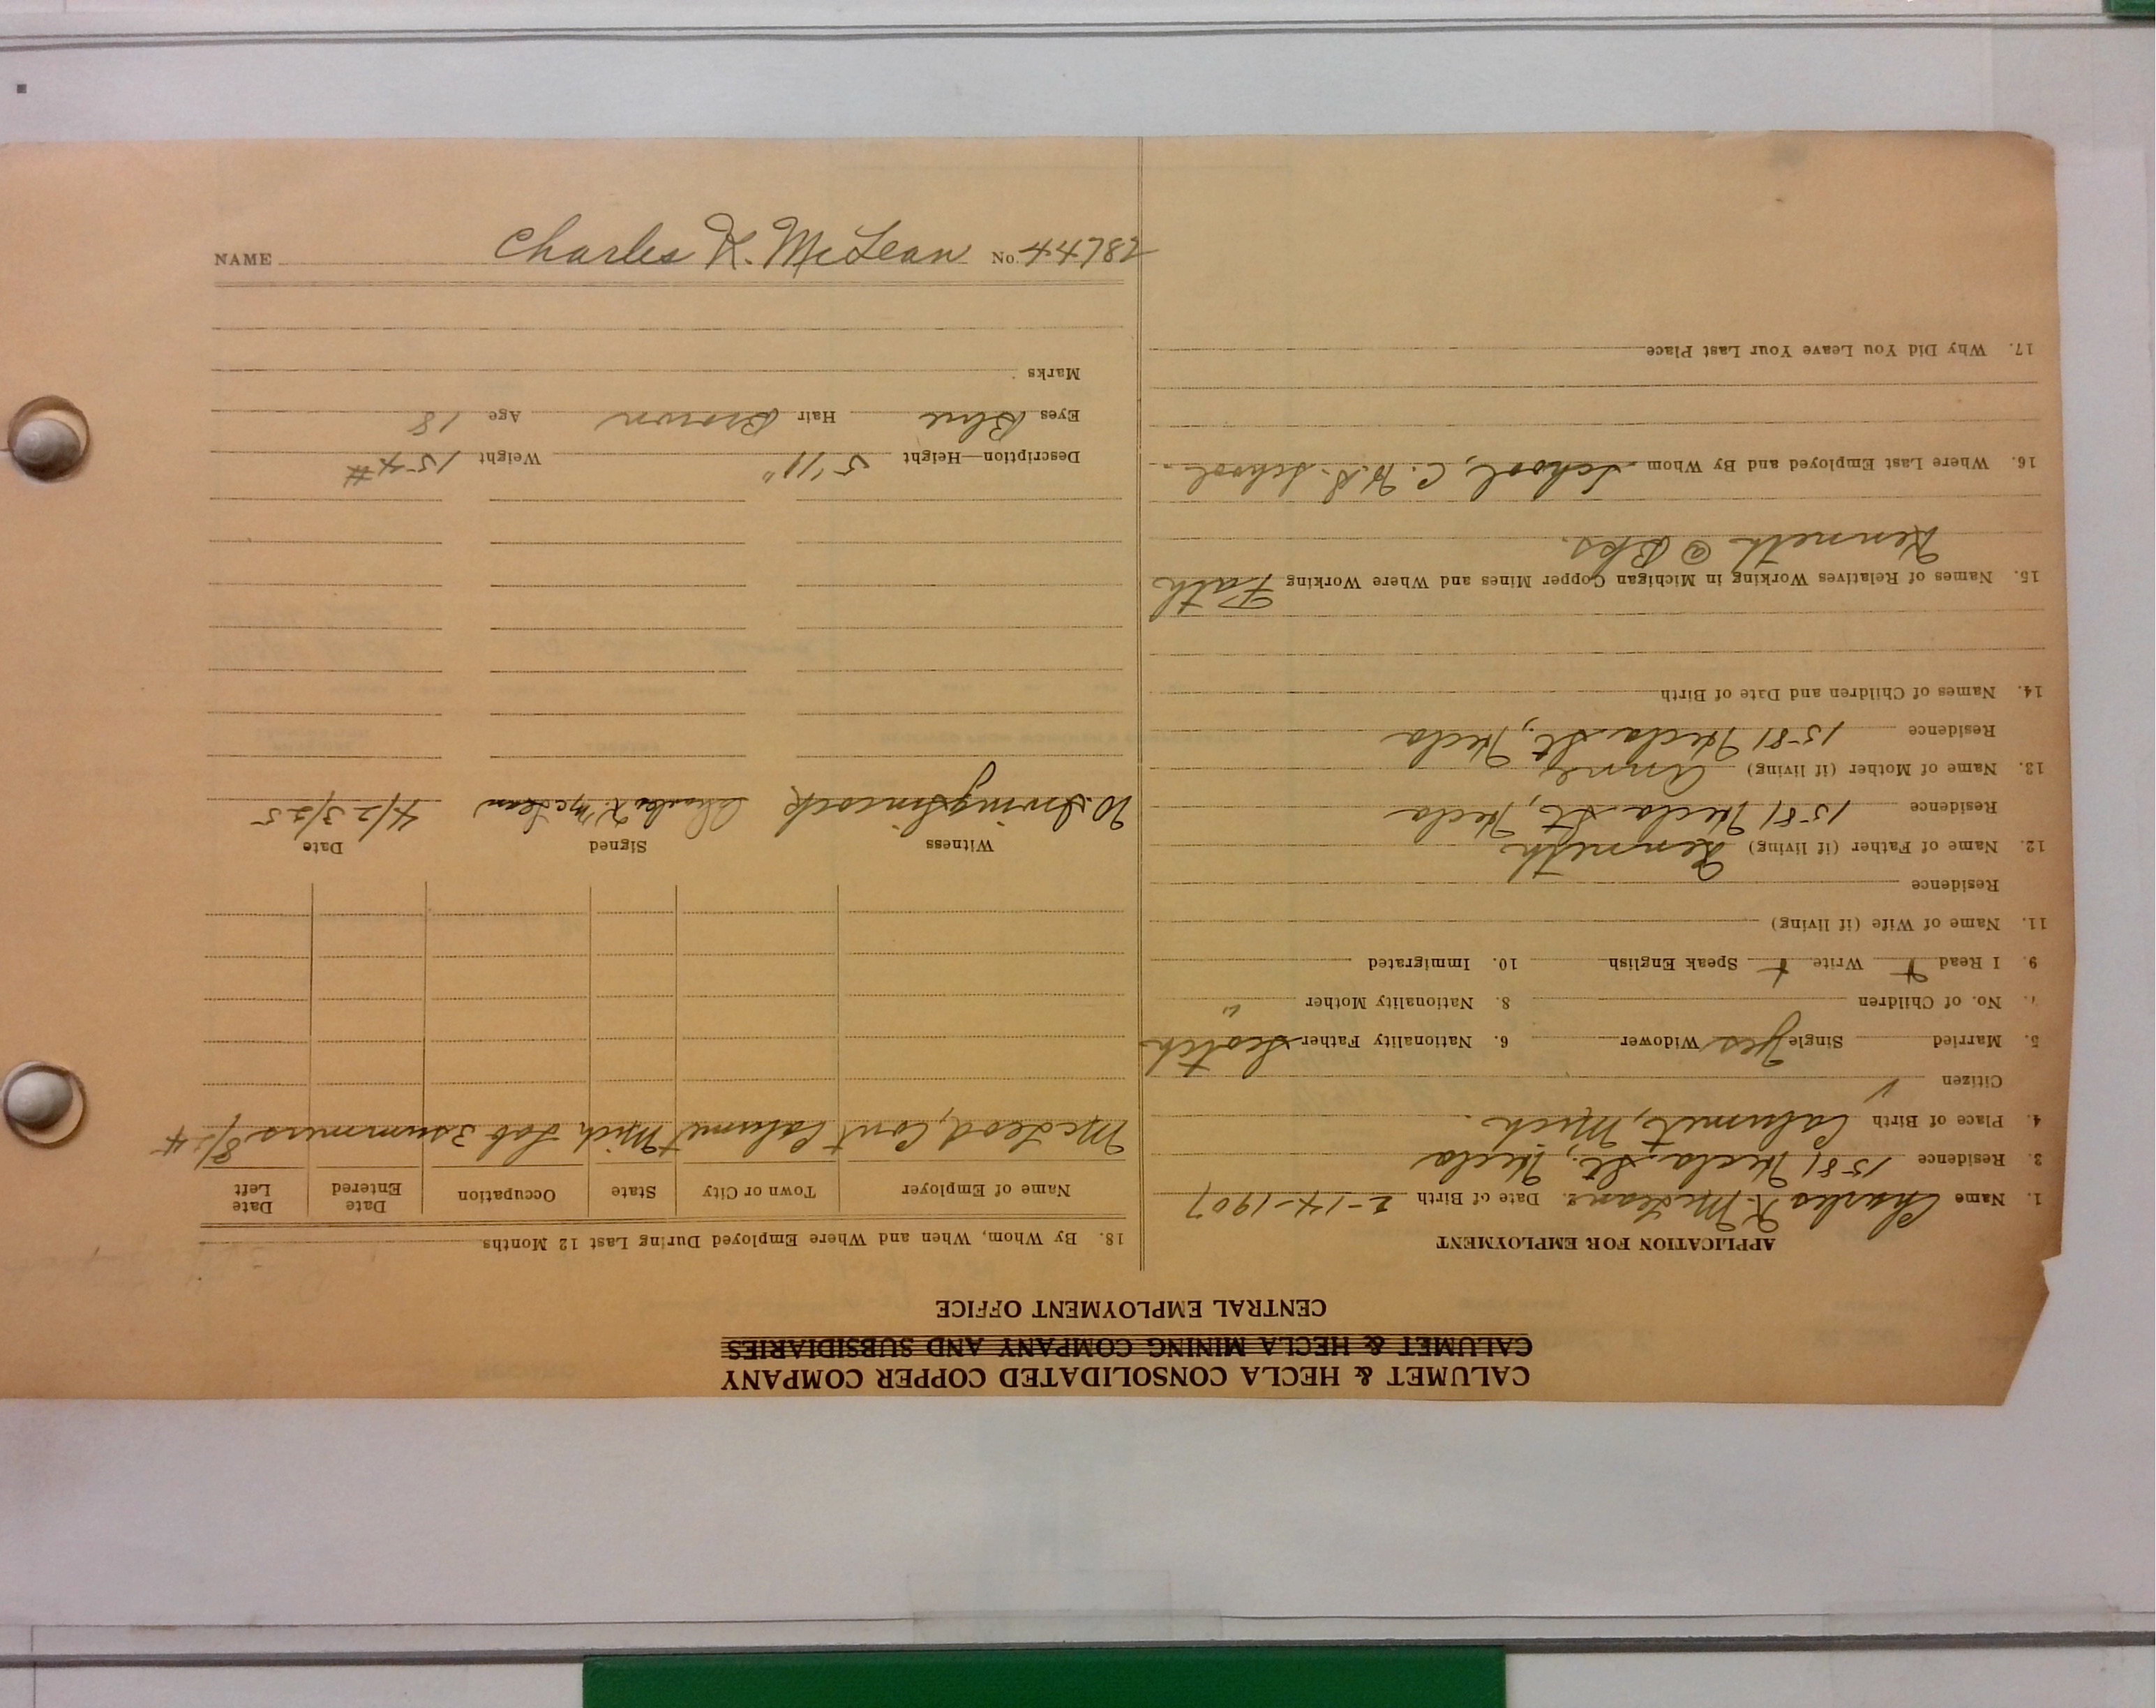 CALUMET & HECLA CONSOLIDATED COPPER COMPANY
CALUMET & HECLA MINING COMPANY AND SUBSIDIARIES
CENTRAL EMPLOYMENT OFFICE
APPLICATION FOR EMPLOYMENT
1. Name Charles K. McLean 2. Date of Birth 2-14-1907
3. Residence 1581 Hecla St., Hecla
4. Place of Birth Calumet, Mich.
Citizen
5. Married Single Yes Widower 6. Nationality Father Scotch
7. No. of Children 8. Nationality Mother "
9. I Read + Write + Speak English 10. Immigrated
11. Name of Wife (if living)
Residence
12. Name of Father (if living) Kenneth
Residence 1581 Hecla St., Hecla
13. Name of Mother (if living) Anne,
Residence 1581 Hecla St., Hecla
14. Names of Children and Date of Birth
15. Names of Relatives Working in Michigan Copper Mines and Where Working Fath
Kenneth @ Bks.
16. Where Last Employed and By Whom School, C.H.S. School.
17. Why Did You Leave Your Last Place
18. By Whom, When and Where Employed During Last 12 Months
Name of Employer Town or City State Occupation Date Entered Date Left
McLeod, Cont Calumet Mich Lab 3 summers 8/24
Witness Signed Date
W. Irving Simcock Charles K. McLean 4/23/25
Description—Height 5'11" Weight 154#
Eyes Blue Hair Brown Age 18
Marks
NAME Charles K. McLean No. 44782